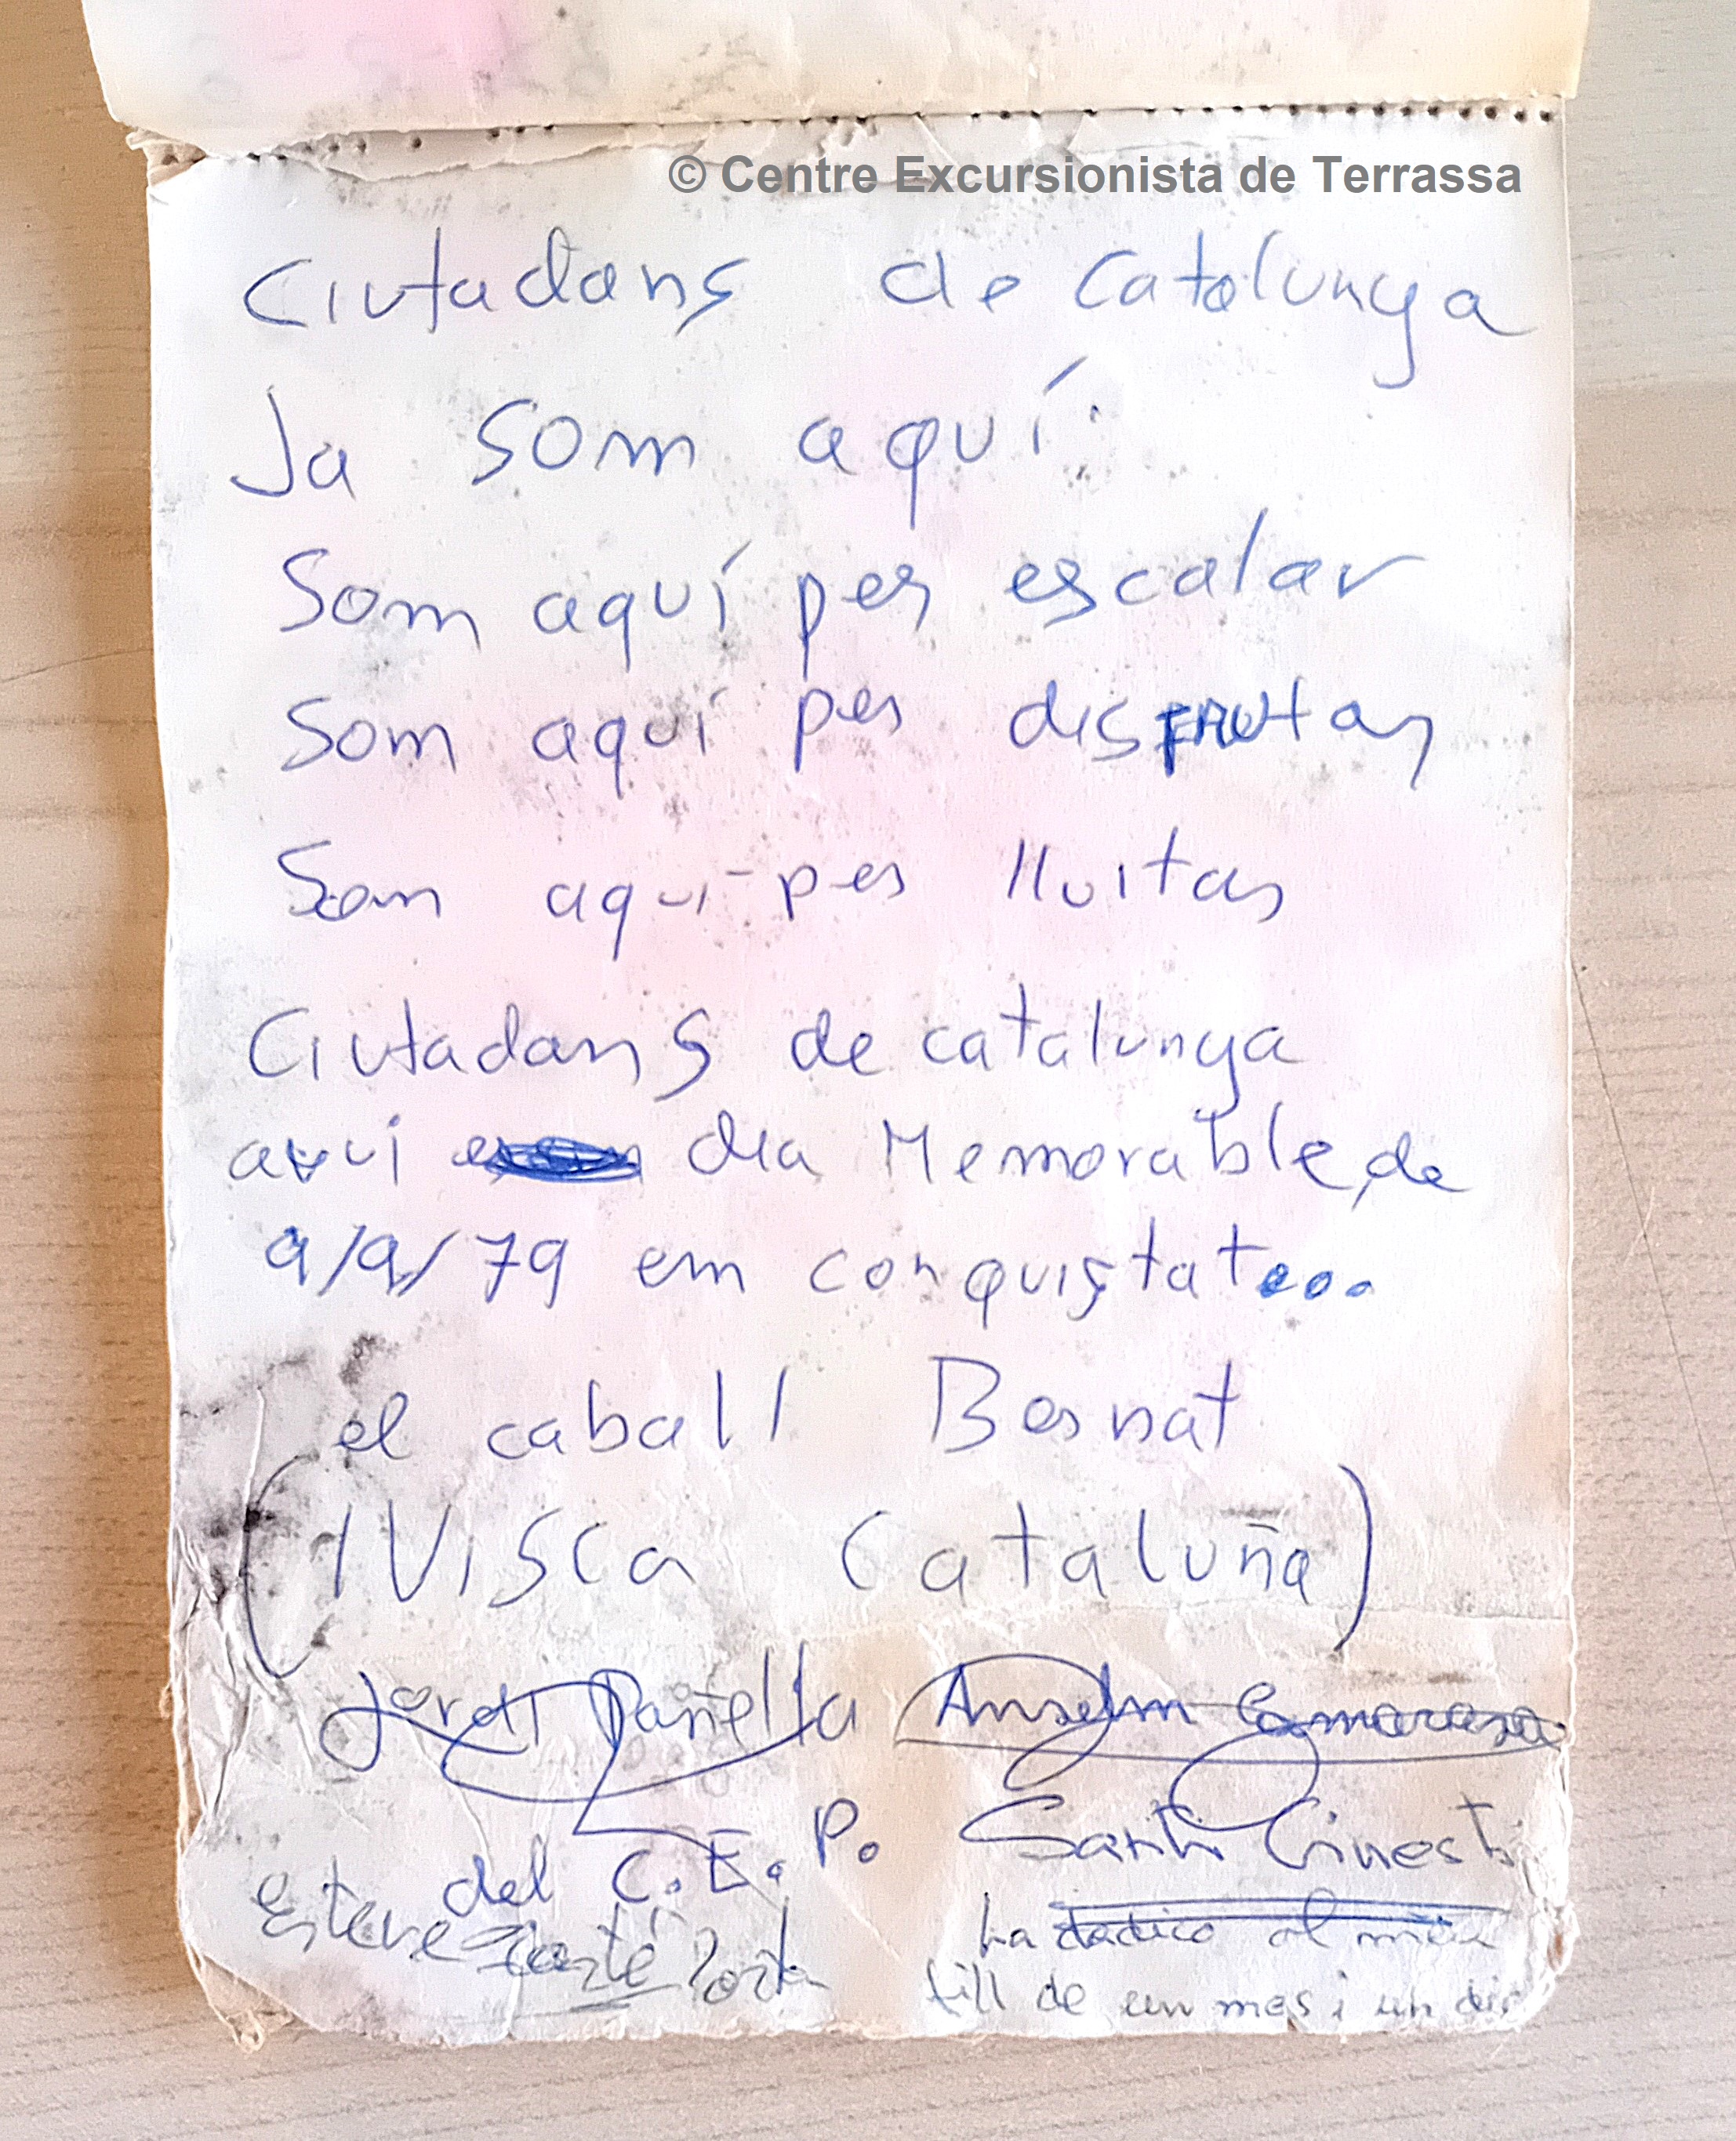 © Centre Excursionista de Terrassa
Ciutadans de Catalunya
Ja som aquí.
Som aquí per escalar
Som aquí per disFRUtar
Som aquí per lluitar
Ciutadans de catalunya
avui dia Memorable, de
9/9/79 em conquistat...
el caball Bernat
(¡Visca Cataluña)
Jordi Pañella Anselm
del C.E.P. Santi Ginesti
Esteve
La dedico al meu
fill de un mes i un dia